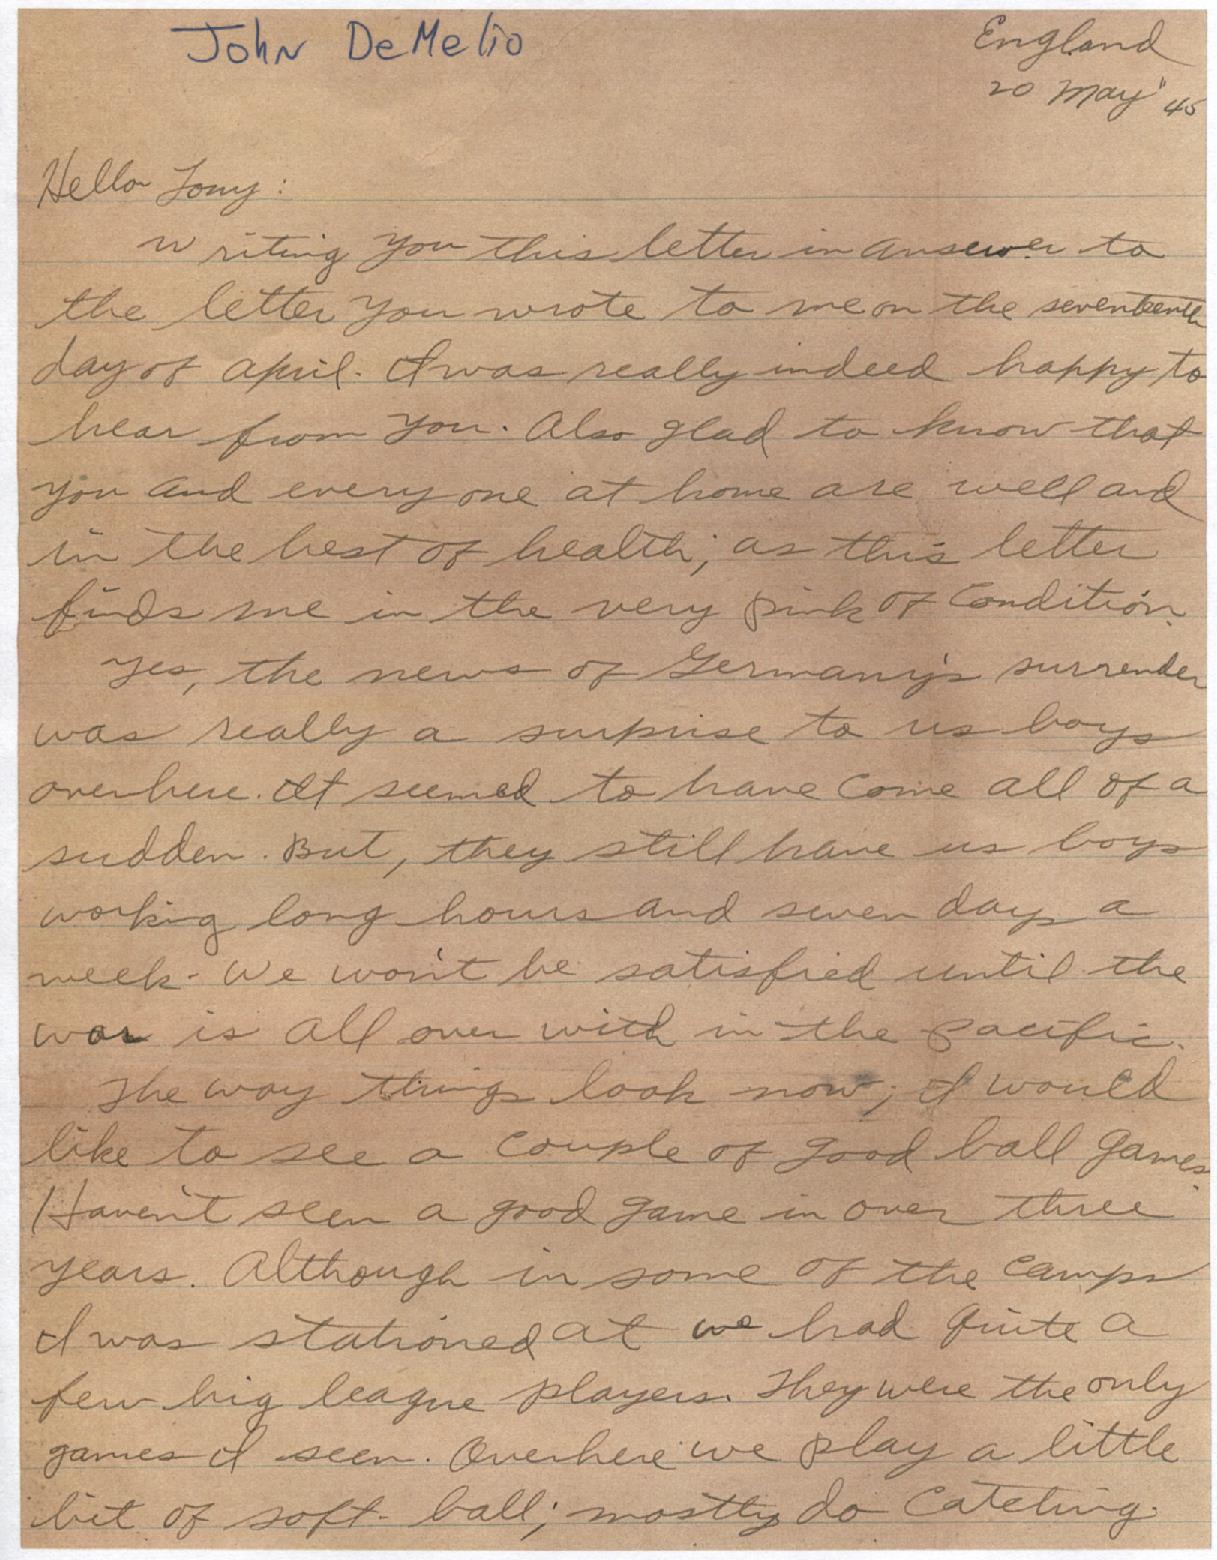 John DeMelio
England
20 May "45
Hello Tony:
Writing you this letter in answer to
the letter you wrote to me on the seventeenth
day of april. I was really indeed happy to
hear from you. Also glad to know that
you and every one at home are well and
in the best of health; as this letter
finds me in the very pink of condition.
Yes, the news of Germany's surrender
was really a surprise to us boys
overhere. It seemed to have come all of a
sudden. But, they still have us boys
working long hours and seven days a
week. We won't be satisfied until the
war is all over with in the Pacific.
The way things look now; I would
like to see a couple of good ball games.
Haven't seen a good game in over three
years. Although in some of the camps
I was stationed at we had quite a
few big league players. They were the only
games I seen. Overhere we play a little
bit of soft-ball; mostly do catching.